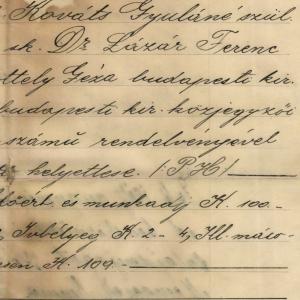 Kováts Gyuláné szül.
sk. Dr Lázár Ferenc
ttely Géza budapesti kir.
budapesti kir. közjegyzői
számú rendelvényével
helyettese. /:P.H/
és munkadíj K. 100.-
K. 2.- 4, Ill. máso-
sen K. 109.-